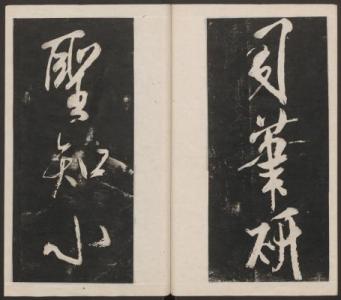 司業研
聖知小